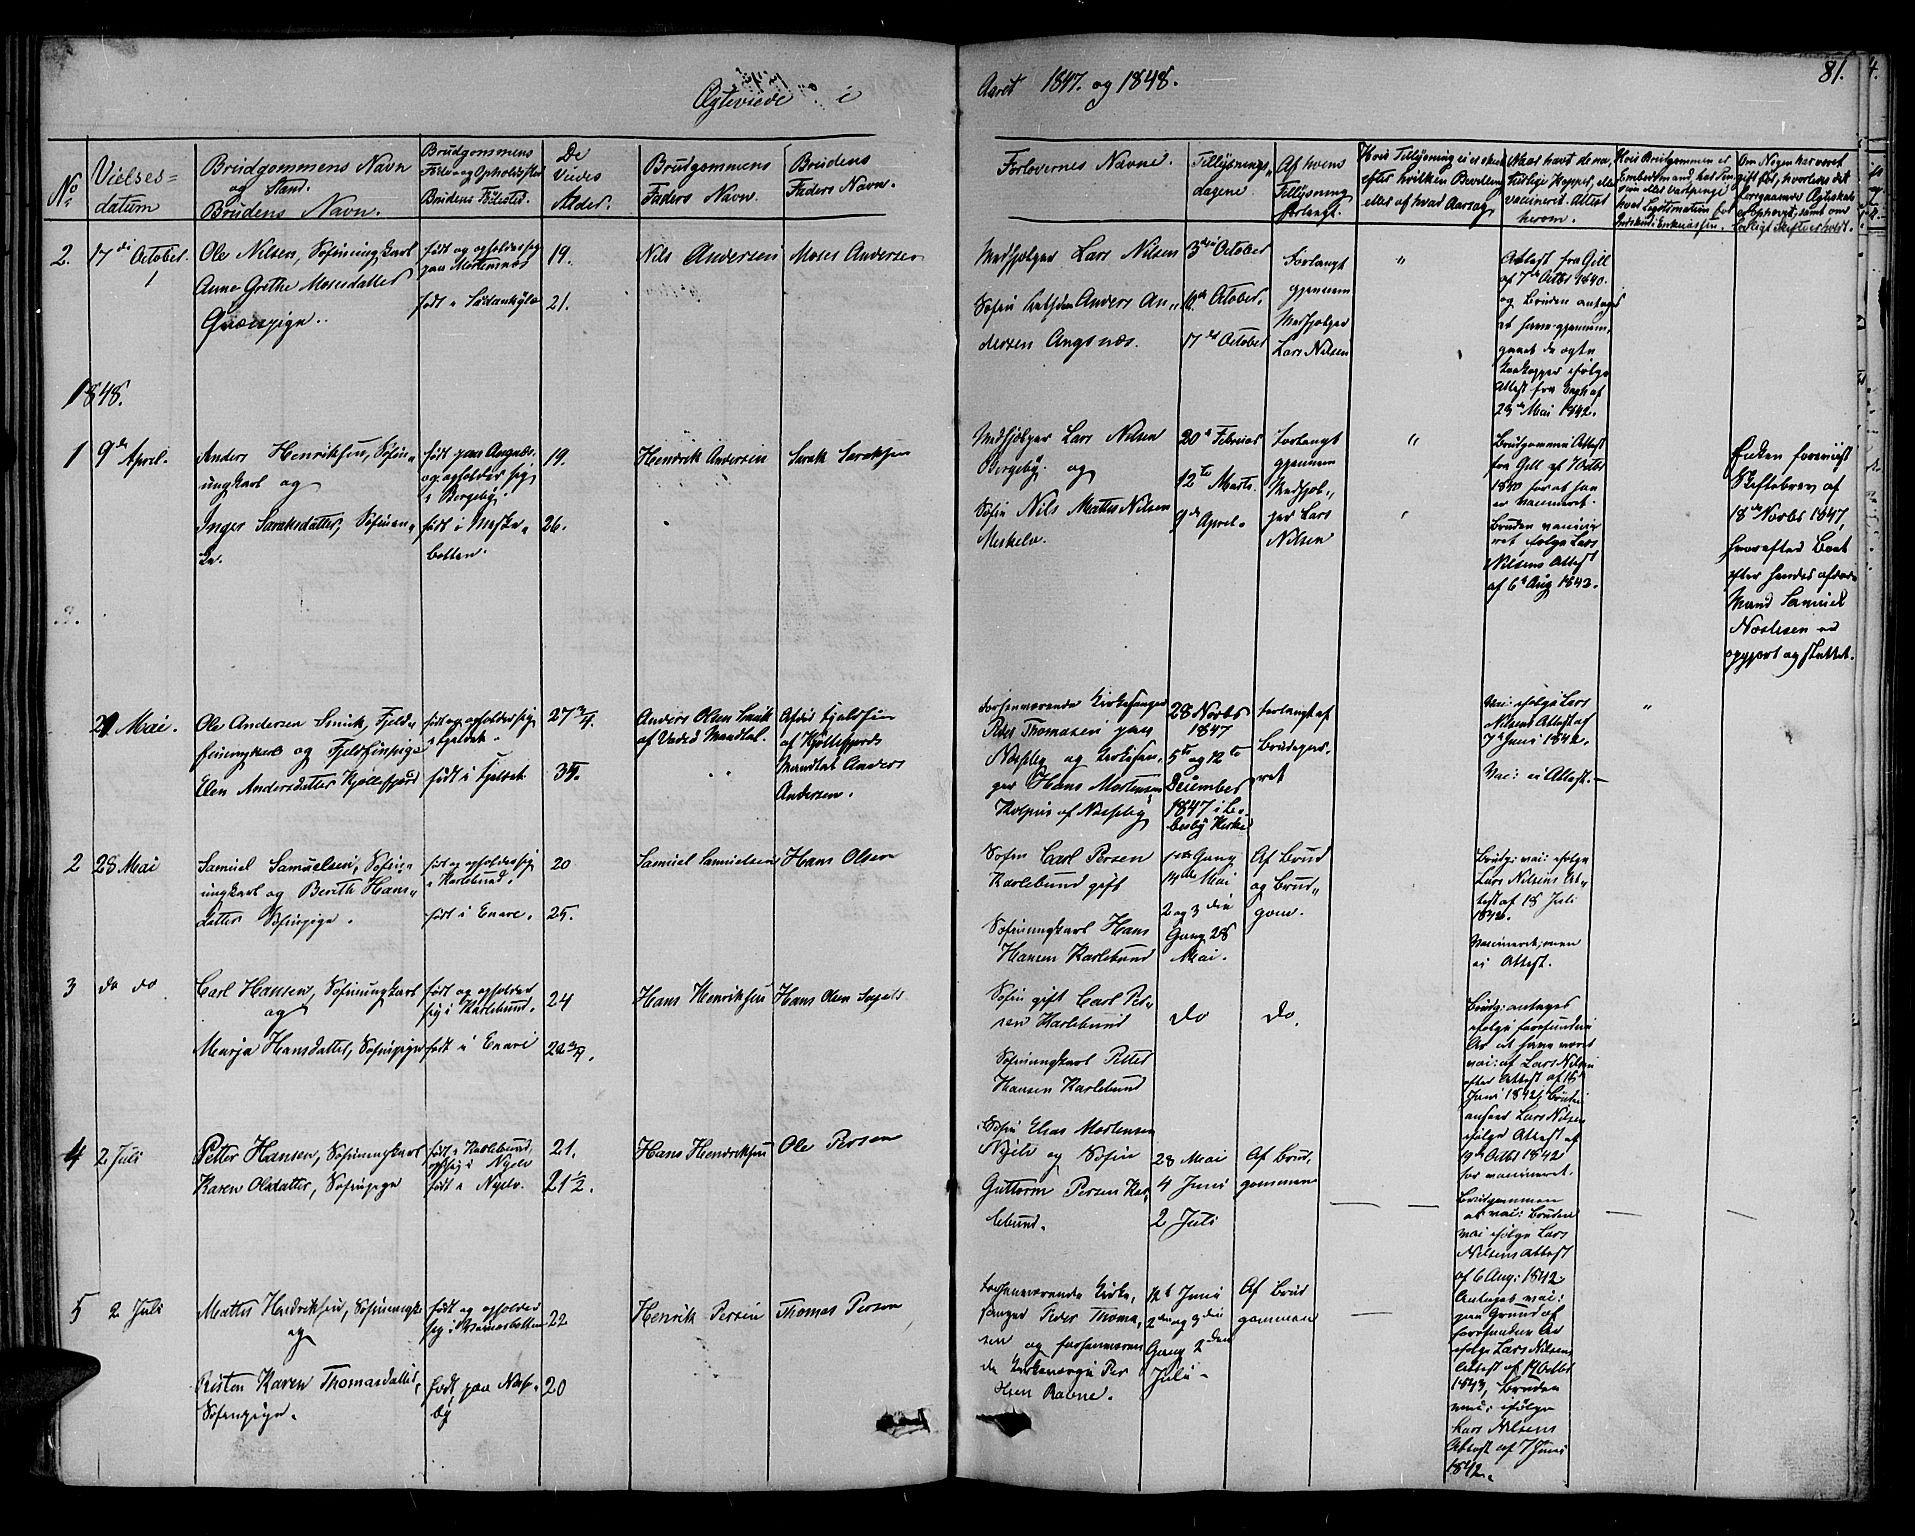 Ægteviede i
Aaret 1847. og 1848.
81.
No
Vielses=
datum
Brudgommens Navn
og Stand.
Brudens Navn.
Brudgommens
Føde og Opholdssted
Brudens Fødested.
De
Viedes
Alder.
Brudgommens
Faders Navn.
Brudens
Faders Navn.
Forlovernes Navne.
Tillysnings
dagene
Af hvem
Tillysning
forlangt.
Hvis Tillysning ei er skeet
efter hvilken Bevilling
eller af hvad Aarsag
2. 17de October.
Ole Nilsen, Søfinungkarl
Anne Grethe Mosesdatter
Qvænpige.
født og opholder sig
paa Mortensnæs
født i Sodankylæ
19.
21.
Nils Andersen
Moses Andersen
Medhjælper Lars Nilsen
Søfin Anders An„
dersen Angsnæs.
3die October
10de October.
17de October
Forlangt
gjennem
Medhjælper
Lars Nilsen
"
Attest fra Gill
af 7de Octbr 1840.
og Bruden antages
at have gjennem„
gaaet de ægte
Attest fra
23de Mai 1842.
1848.
1 9de April.
Anders Henriksen, Søfin„
ungkarl og
Inger Saraksdatter, Søfinen„
ke.
født paa Angnæs.
og opholder sig
i Bergeby.
født i Meske„
botten.
19.
26.
Hendrik Andersen
Sarak Saraksen
Medhjælper Lars Nilsen
Bergeby. og
Søfin Nils Matte Nilsen
Meskelv.
20de Februar
12te Marts.
9de April.
Forlangt
gjennem
Medhjæl„
per Lars
Nilsen
"
Brudgommen Attest
fra Gill af 7 Octbr
1840 for at han
er vaccineret.
Bruden vaccine
ret ifølge Lars
Nilsens Attest
af 6te Aug 1842.
Enken foreviist
Skiftebrev af
18de Novbr 1847,
hvorefter Boet
efter hendes afdøde
Mand Samuel
Nielsen er
opgjort og sluttet.
21 Mai.
Ole Andersen Smuk, Fjeld„
finungkarl og Fjeldfinpige
Elen Andersdatter Kjøllefjord
født og opholder sig
i Fjeldet.
født i Fjeldet.
27 3/4.
35.
Anders Olsen Smuk
af Vadsø Mandtal.
Afdøde Fjeldfin
af Kjøllefjords
Mandtal Anders
Andersen.
Forhenværende Kirkesanger
Peder Thomasen paa
Næsseby og Kirkesan„
ger Hans Mortensen
Kolpus af Næsseby
28 Novbr
1847
5te og 12te
December
1847 i Le„
besby Kirke
Forlangt af
Brudepar„
ret
Vac: ifølge Lars
Nilsens Attest af
7de Juni 1842.
Vac: ei Attest.
"
2 28 Mai
Samuel Samuelsen, Søfin„
ungkarl og Berith Hans„
datter Søfinpige.
født og opholder sig
i Karlebund.
født i Enare.
20
25.
Samuel Samuelsen
Hans Olsen
Søfin Carl Persen
Karlebund gift
Søfinungkarl Hans
Hansen Karlebund
1ste Gang
14de Mai
2 og 3die
Gang 28
Mai.
Af Brud
og Brud„
gom.
Brudg: vac: ifølge
Lars Nilsens At„
test af 18 Juli
1842.
Vaccineret, men
ei Attest.
3 do do
Carl Hansen, Søfinungkarl
og
Marja Hansdatter, Søfinpige
født og opholder
sig i Karlebund.
født i Enare
24
22 3/4.
Hans Henriksen
Hans Olsen
Søfin gift Carl Per„
sen Karlebund
Søfinungkarl Petter
Hansen Karlebund
do
do.
Brudg: antages
ifølge forefundne
Ar at have været
vac: af Lars Nilsen
efter Attest af 18
Juni 1842; Bruden
anseer Lars Nilsen
ifølge Attest af
19de Octbr 1842
for vaccineret.
4 2 Juli
Petter Hansen, Søfinungkarl
Karen Olsdatter, Søfinpige
født i Karlebund,
opsig i Nyelv
født i Nyelv.
21.
21 1/2.
Hans Hendriksen
Ole Persen
Søfin Elias Mortensen
Nyelv og Søfin
Guttorm Persen Kar„
lebund.
28 Mai
4 Juni
2 Juli
Af Brud„
gommen
Brudgommen
er vac: Bruden
vac ifølge Lars
Nilsens Attest
af 6 Aug: 1842
5 2 Juli
Mattis Hendriksen, Søfinungk
og
Risten Karen Thomasdatter,
Søfinpige.
født og opholder
sig i
født paa Næsse„
by
22
20
Henrik Persen
Thomas Persen
Forhenværende Kirke„
sanger Peder Thoma„
sen og forhenværen
de Kirkeværge Per
Olsen Ravne.
11te Juni
2den og 3die
Gang 2den
Juli
Af Brud
gommen
Antages vac:
paa Grund af
forefundne Ar
ifølge Lars Nilsens
Attest af 19 Octbr
1843, Bruden
vac: ifølge
Lars Nilsens
Attest af 7 Juni
1842.